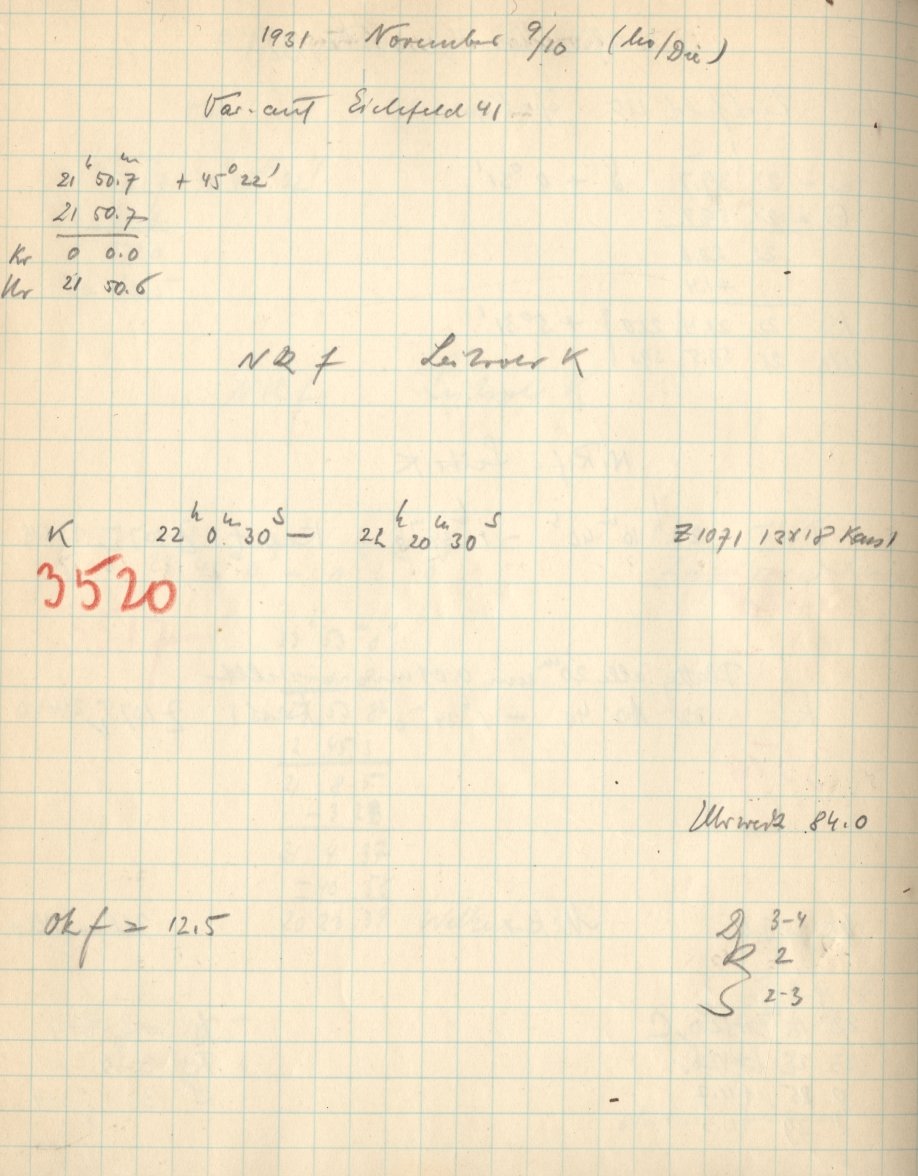 1931 November 9/10 (Mo/Die)
Var. auf Eichfeld 41
21ʰ 50.7ᵐ + 45° 22'
21 50.7
Kr 0 0.0
Uhr 21 50.6
NR f Leitrohr K
K 22ʰ 0ᵐ 30ˢ — 22ʰ 20ᵐ 30ˢ Z 1071 13x18
3520
Uhrwerk 84.0
Ok f = 12.5
D 3-4
R 2
S 2-3